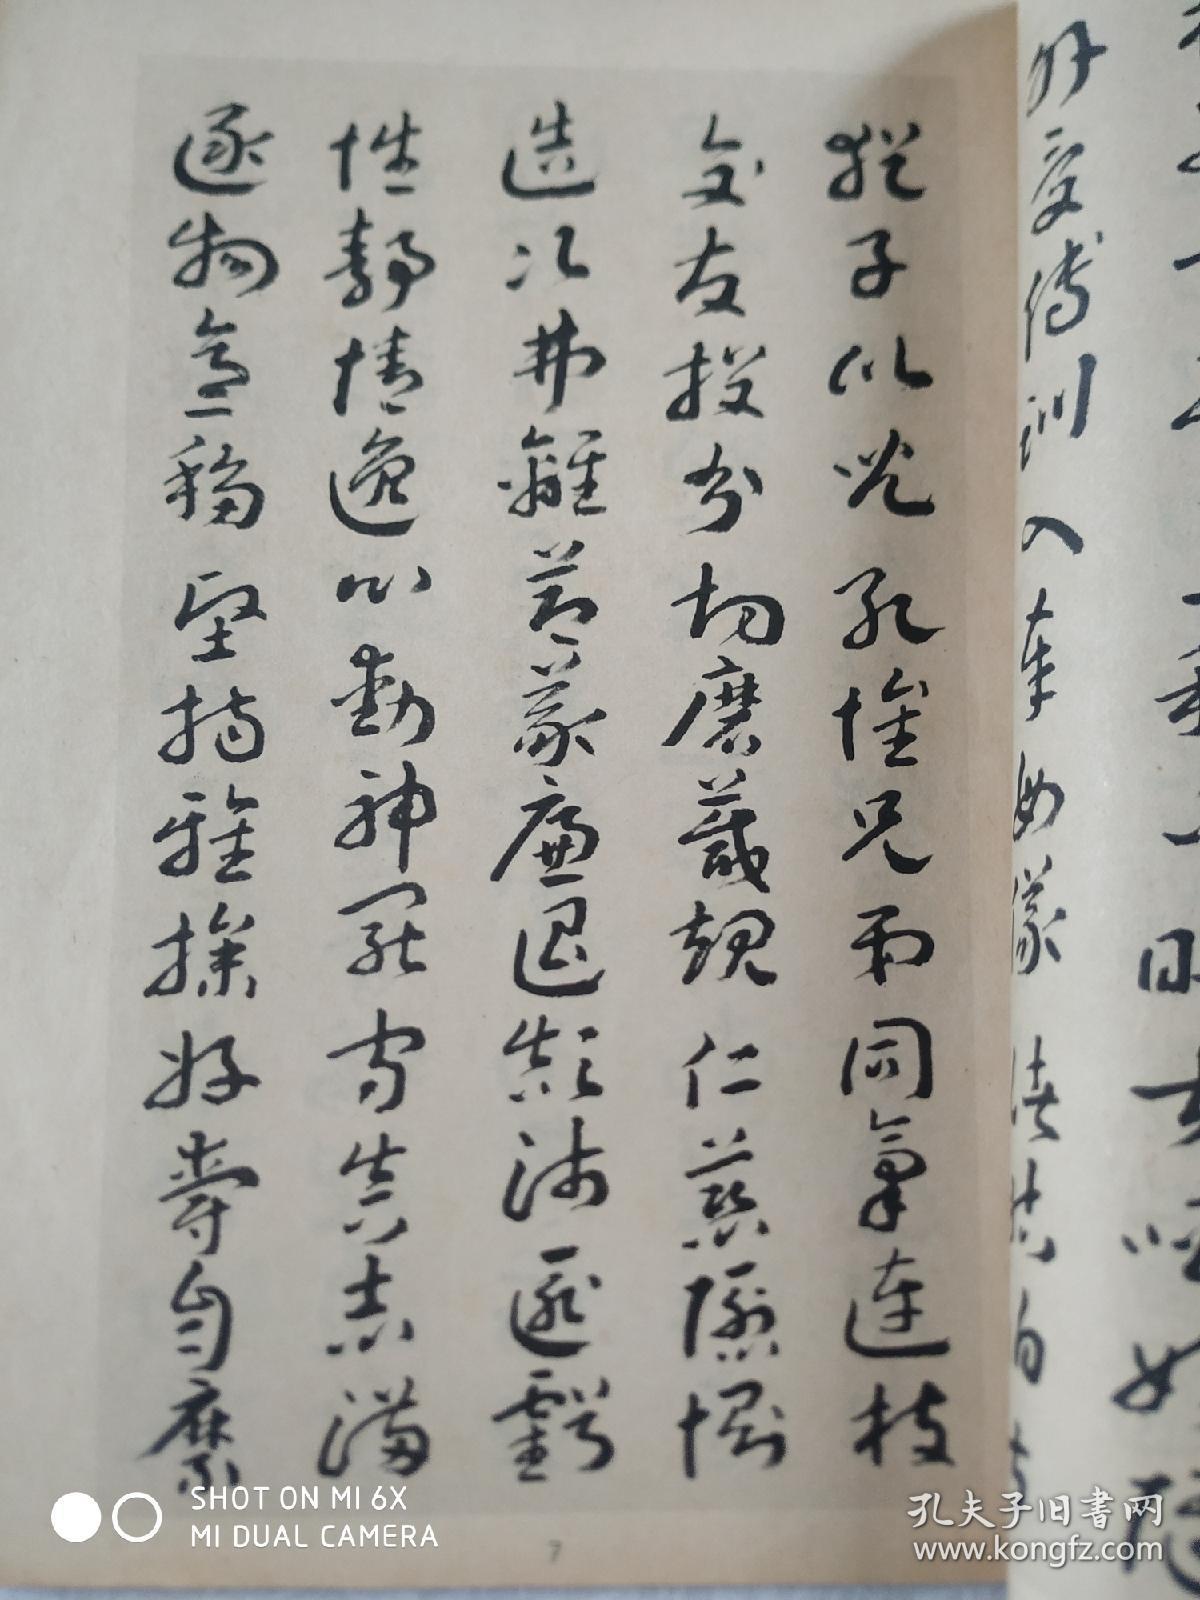 外受傅訓入奉母儀諸
猶子比兒孔懷兄弟同氣連枝
交友投分切磨箴規仁慈隱惻
造次弗離節義廉退顛沛匪虧
性靜情逸心動神疲守真志滿
逐物意移堅持雅操好爵自縻
7
SHOT ON MI 6X
MI DUAL CAMERA
孔夫子旧书网
www.kongfz.com